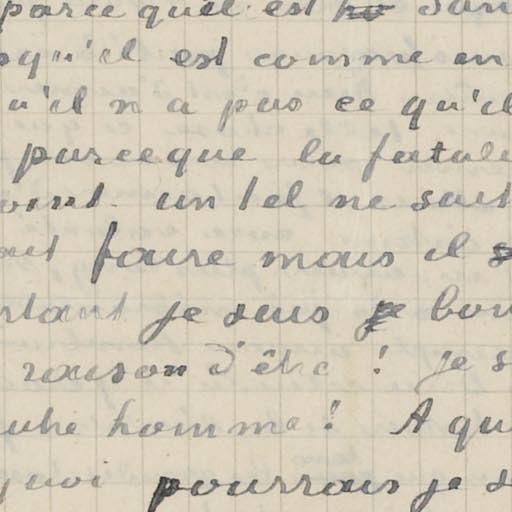 parce qu'il est dan
squ'il est comme en
u'il n a pas ce qu'il
parceque la fatali
oint. un tel ne sait
ait faire mais il s
rtant je suis je bon
raison d'être ! je s
utre homme ! A qu
quoi pourrais je s